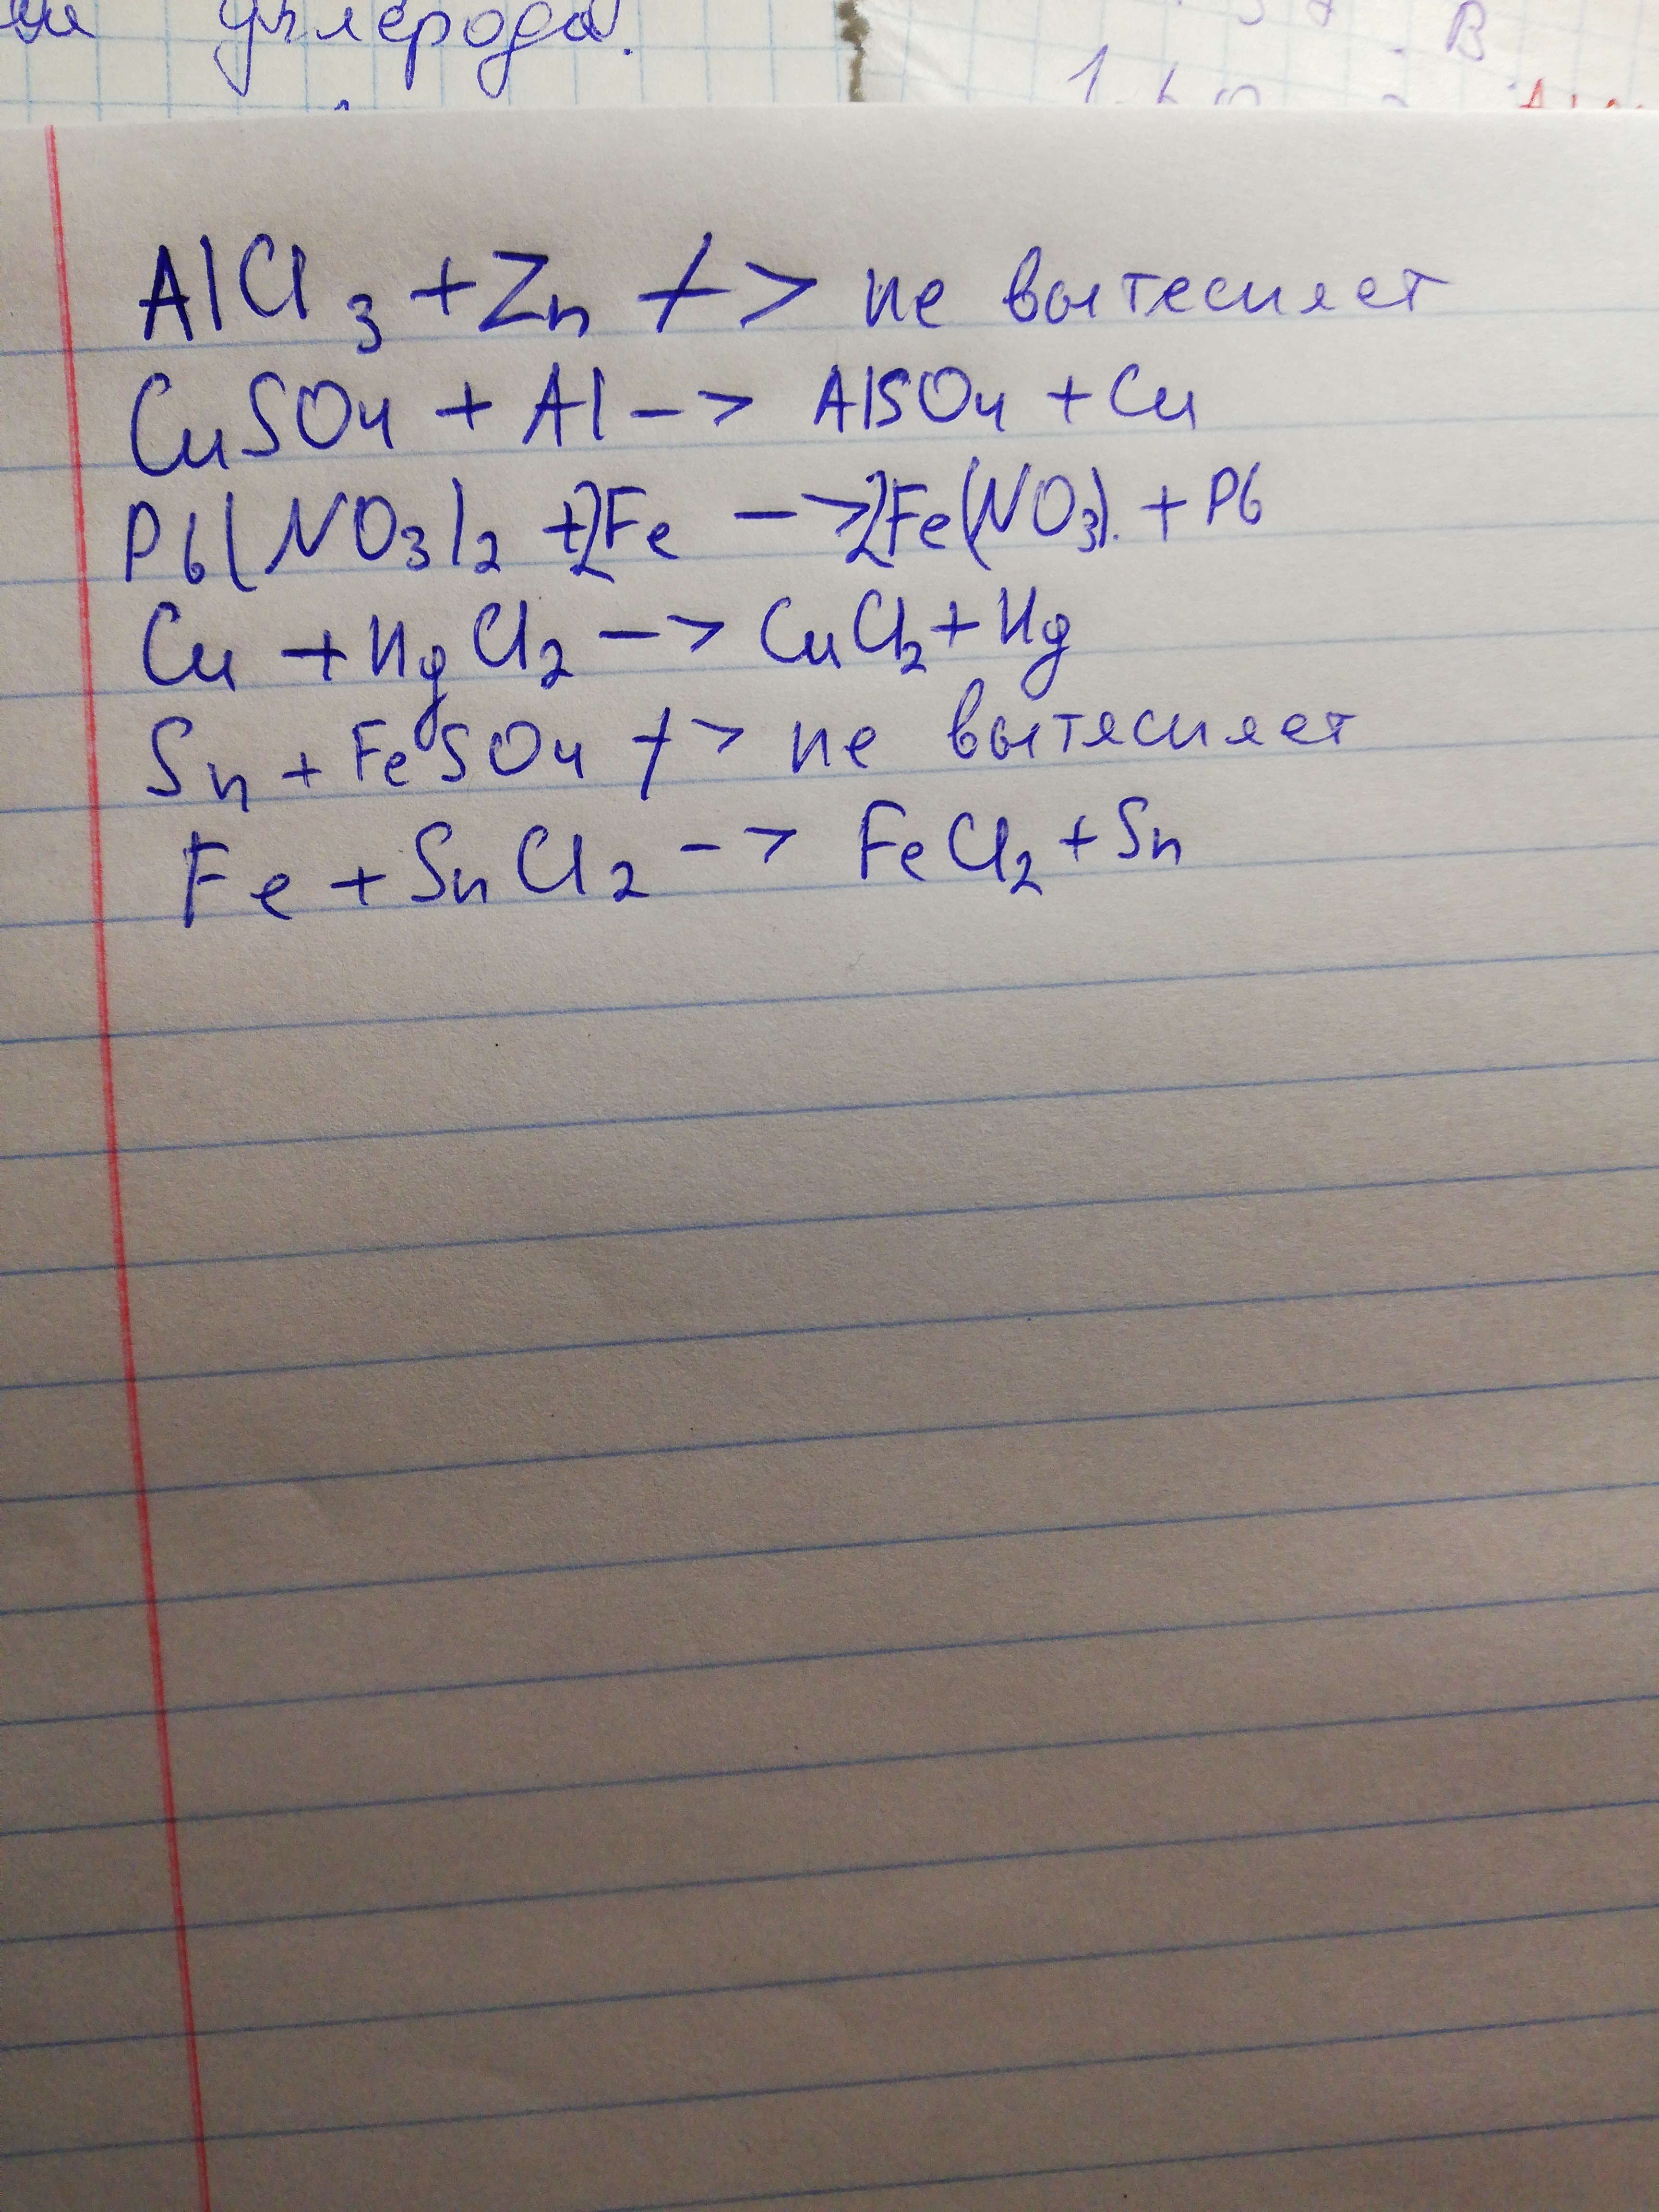 углерода.
В
AlCl3 + Zn -/-> не вытесняет
CuSO4 + Al -> AlSO4 + Cu
Pb(NO3)2 + 2Fe -> 2Fe(NO3). + Pb
Cu + HgCl2 -> CuCl2 + Hg
Sn + FeSO4 -/-> не вытясняет
Fe + SnCl2 -> FeCl2 + Sn